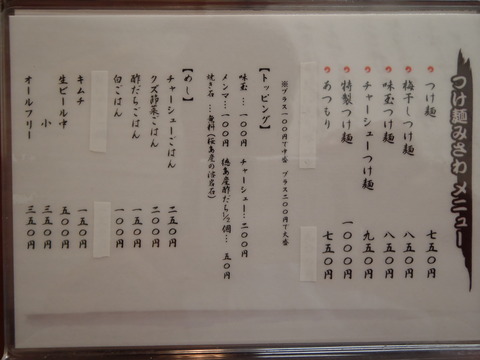 つけ麺みさわ メニュー
つけ麺 七五〇円
梅干しつけ麺 八五〇円
味玉つけ麺 八五〇円
チャーシューつけ麺 九五〇円
特製つけ麺 一〇〇〇円
あつもり 七五〇円
※プラス一〇〇円で中盛 プラス二〇〇円で大盛
【トッピング】
味玉…一〇〇円 チャーシュー…二〇〇円
メンマ…一〇〇円 徳島産酢だち1/2個…五〇円
焼き石…無料(桜島産の溶岩石)
【めし】
チャーシューごはん 二五〇円
クズ野菜ごはん 二〇〇円
酢だちごはん 一五〇円
白ごはん 一〇〇円
キムチ 一五〇円
生ビール中 五〇〇円
小 三五〇円
オールフリー 三五〇円